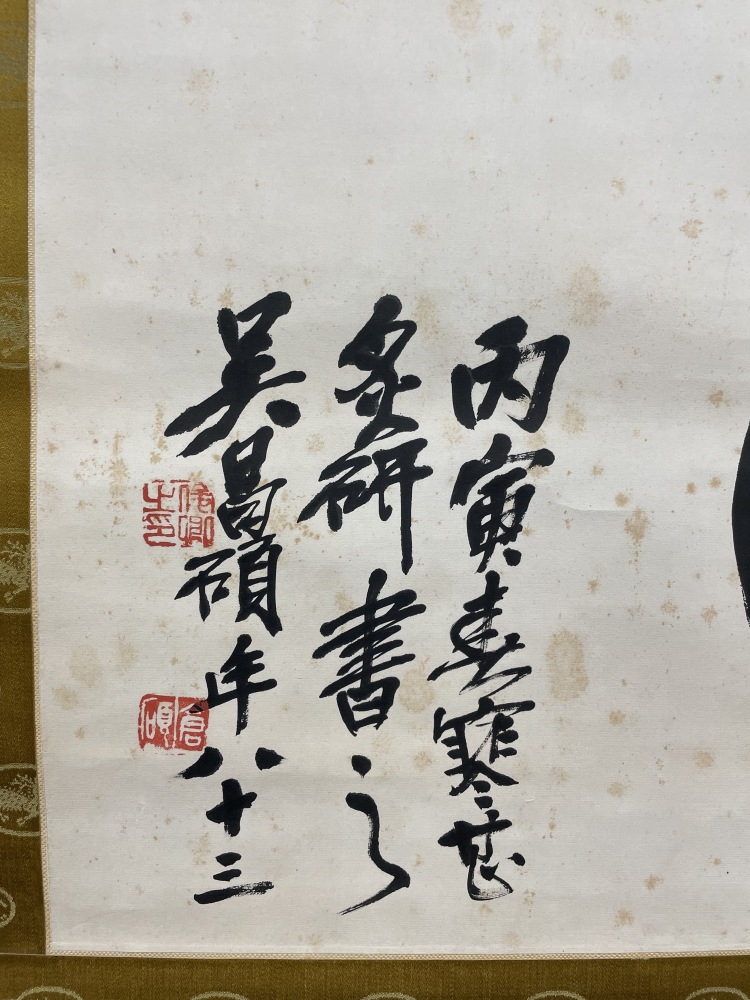 丙寅春寒甚
炙研書之
吳昌碩年八十三
俊卿之印
倉碩